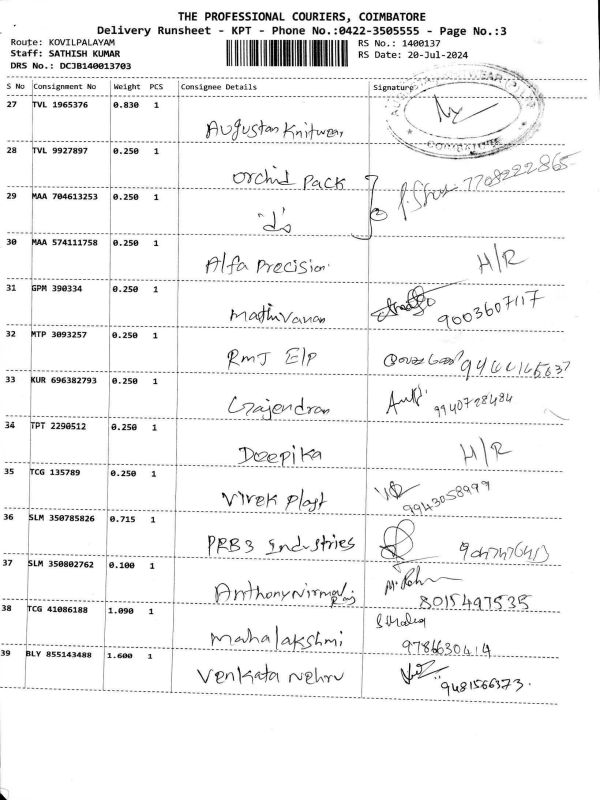 THE PROFESSIONAL COURIERS, COIMBATORE
Delivery Runsheet - KPT - Phone No.:0422-3505555 - Page No.:3
Route: KOVILPALAYAM RS No.: 1400137
Staff: SATHISH KUMAR RS Date: 20-Jul-2024
DRS No.: DCJB140013703
S No Consignment No Weight PCS Consignee Details Signature
27 TVL 1965376 0.830 1
Augustan Knitwear
COIMBATORE
28 TVL 9927897 0.250 1
Orchid Pack 7708222865
29 MAA 704613253 0.250 1
"do 2
30 MAA 574111758 0.250 1
Alfa Precision H/R
31 GPM 390334 0.250 1
Mathivanan 9003607117
32 MTP 3093257 0.250 1
RMJ E/P
33 KUR 696382793 0.250 1
Gajendran 9940728484
34 TPT 2290512 0.250 1
Deepika H/R
35 TCG 135789 0.250 1
Vivek Plast 9943058999
36 SLM 350785826 0.715 1
PRB3 Industries
37 SLM 350802762 0.100 1
Anthony Nirmal Raj 8015497535
38 TCG 41086188 1.090 1
Mahalakshmi 9786630414
39 BLY 855143488 1.600 1
Venkata Nehru 9481566373.